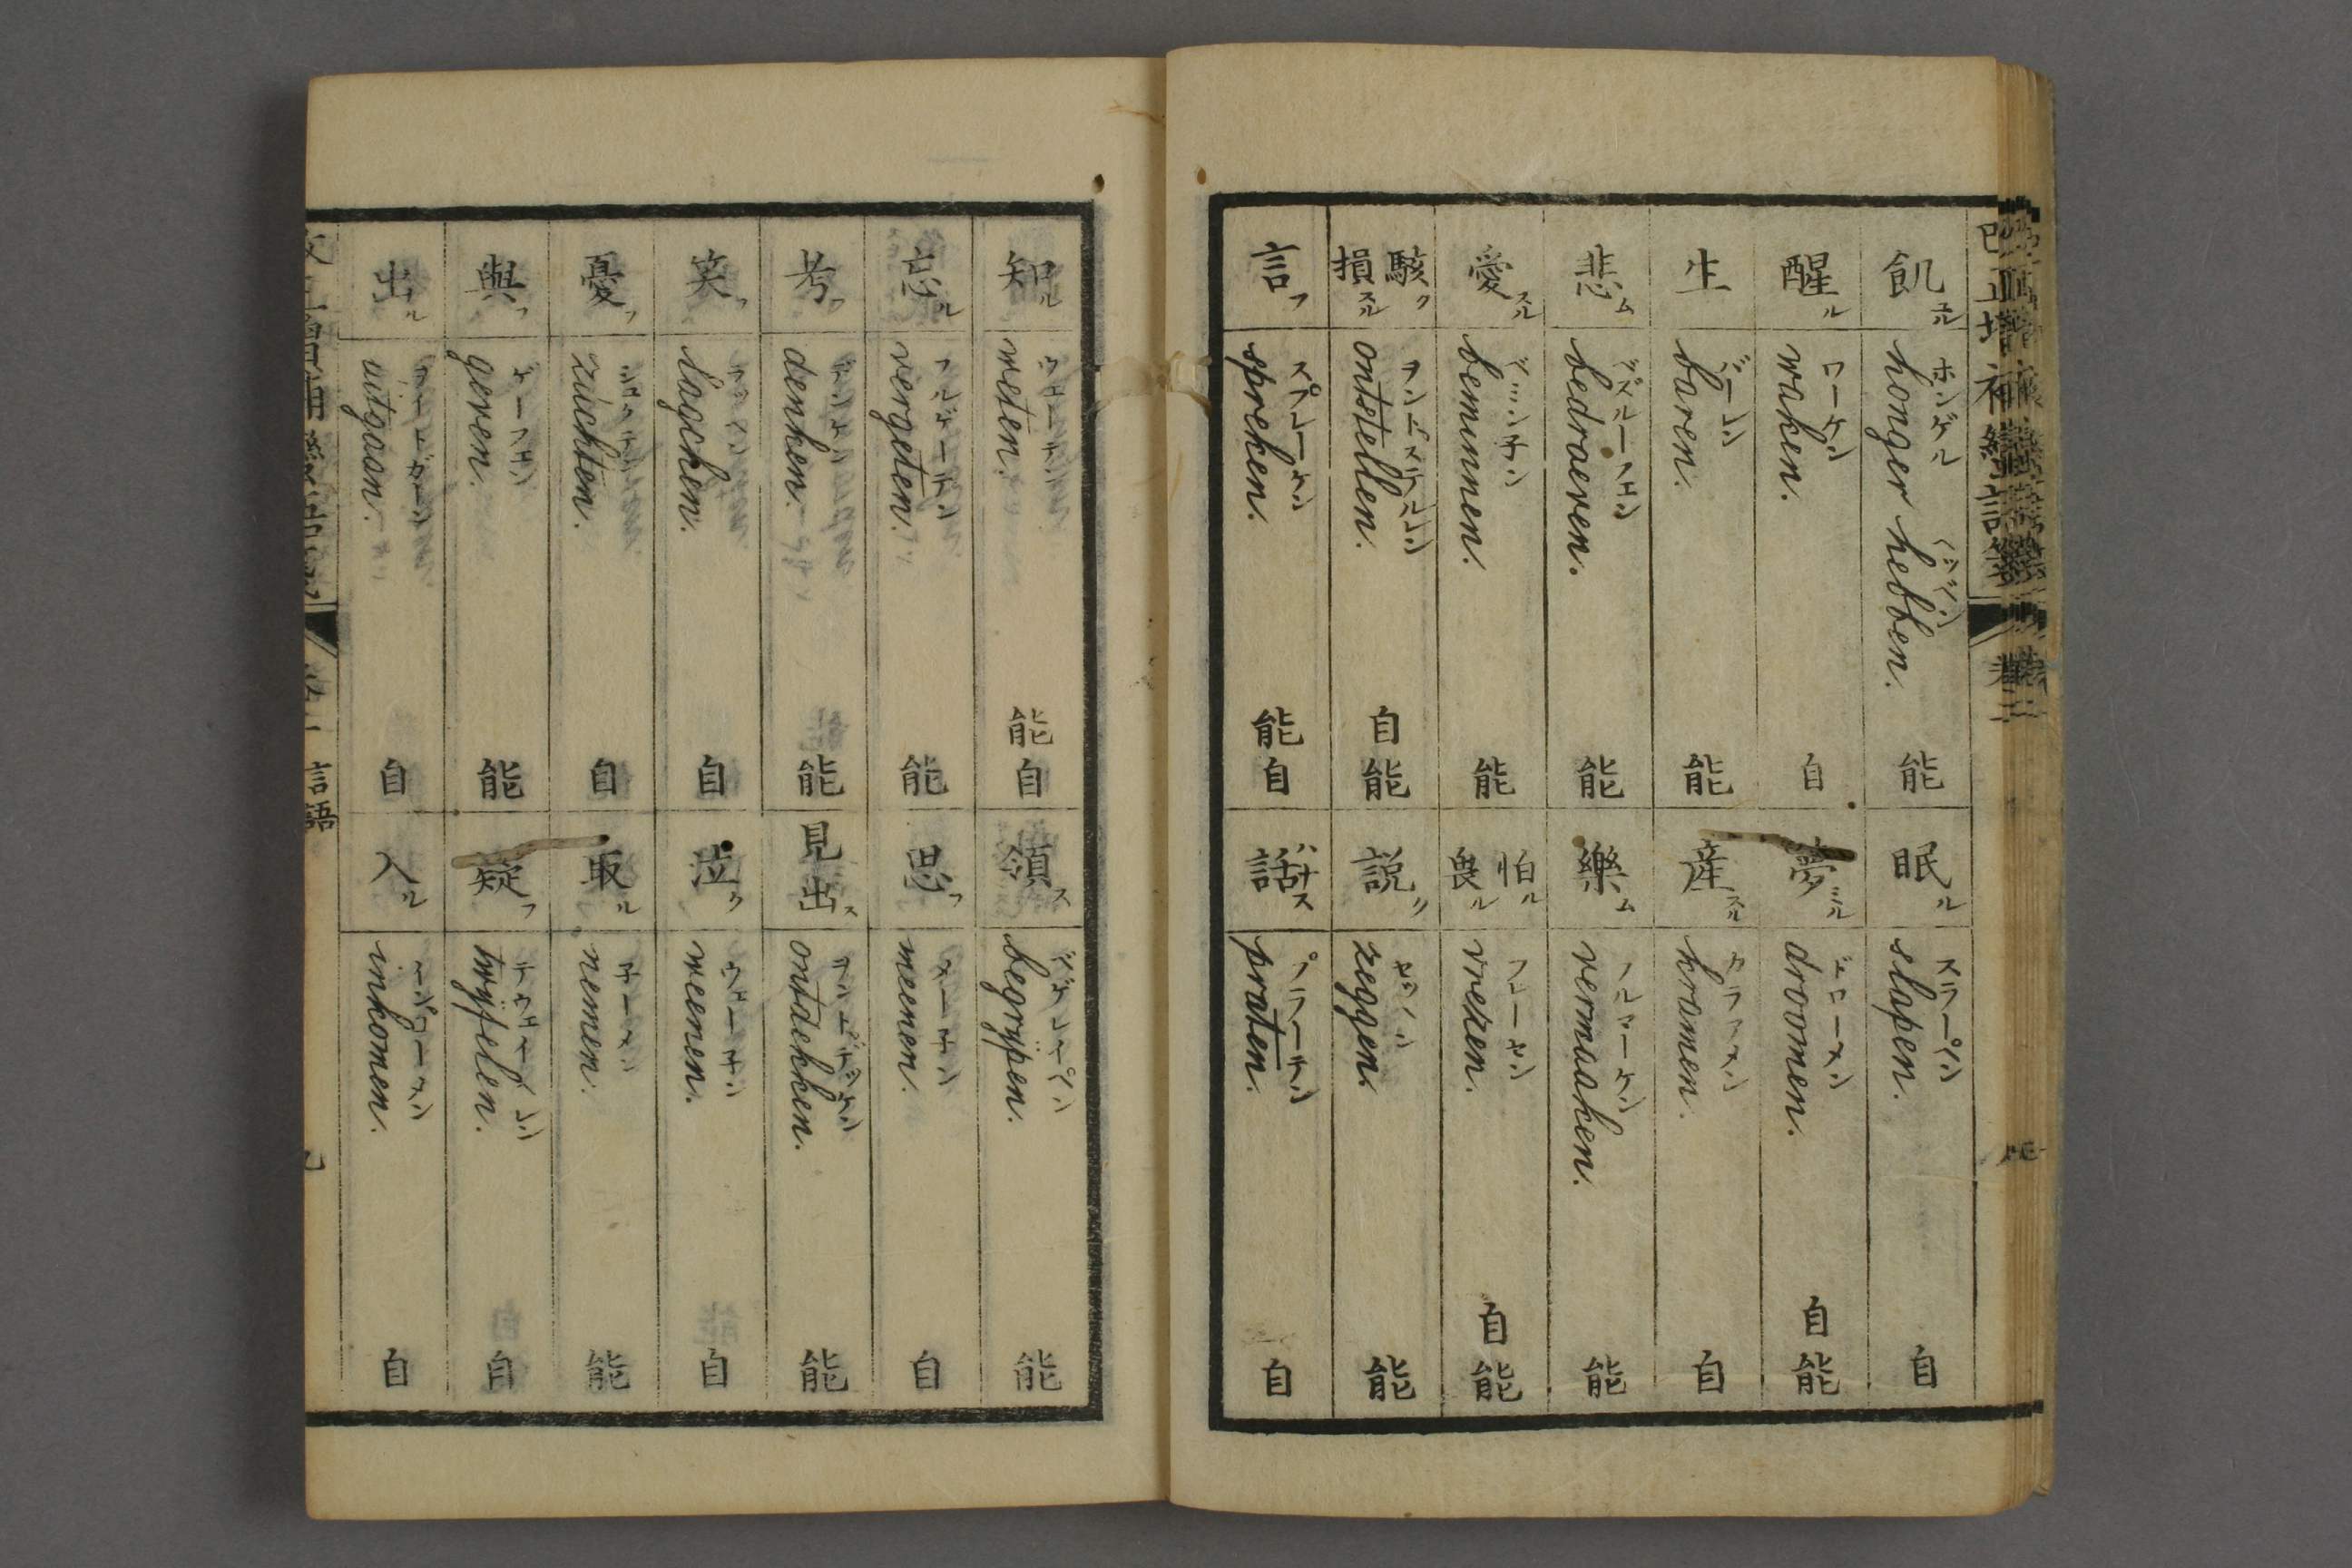 飢ヱル
ホンゲル
honger hebben.
能
眠ル
スラーペン
slapen.
自
醒ル
ワーケン
waken.
自
夢ミル
droomen.
自能
生
バーレン
baren.
能
産スル
カラアメン
kramen.
自
悲ム
bedroeven.
能
樂ム
フルマーケン
vermaaken.
能
愛スル
beminnen.
能
怕ル
畏ル
フレーセン
vrezen.
自能
駭ク
損スル
ontstellen.
自能
説ク
zeggen.
能
言フ
スプレーケン
spreken.
能自
話ハナス
プラーテン
praten.
自
知ル
ウェーテン
weten.
能自
領ス
begrÿpen.
能
忘ル
フルゲーテン
vergeten.
能
思フ
メー子ン
meenen.
自
考フ
デンケン
denken.
能
見出ス
ontdekken.
能
笑フ
lagchen.
自
泣ク
ウェー子ン
weenen.
自
憂フ
zuchten.
自
取ル
子ーメン
nemen.
能
與フ
ゲーフェン
geven.
能
疑フ
twÿfelen.
自
出ル
ヲイトガーン
uitgaan.
自
入ル
インコーメン
inkomen.
自
言語